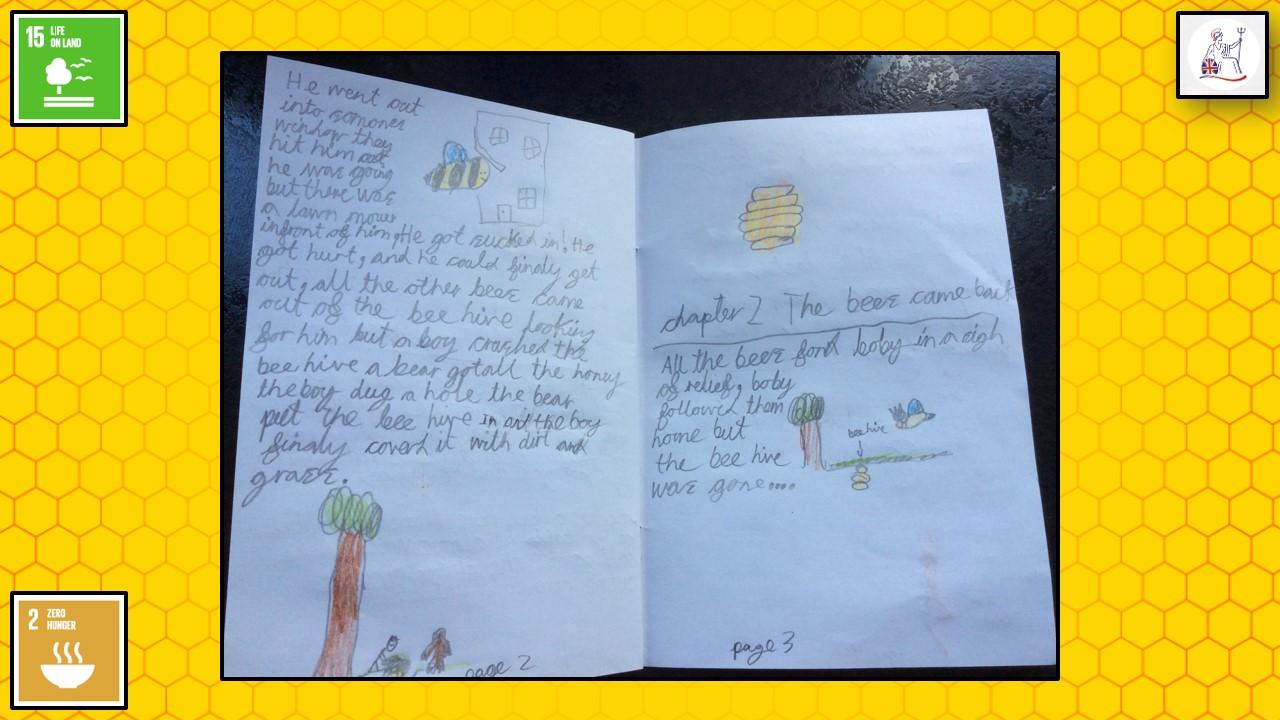 15 LIFE
ON LAND
He went out
into somones
window they
hit him out
he was going
but there was
a lawn mower
infront of him, He got sucked in! He
got hurt, and he could finaly get
out, all the other bees came
out of the bee hive looking
for him but a boy crashed the
bee hive a bear got all the honey
the boy dug a hole the bear
put the bee hive in the boy
finaly coverd it with dirt and
grass.
page 2
chapter 2 The bees came back
All the bees fond boby in a sigh
of relief, boby
followed them
home but
bee hive
the bee hive
was gone....
page 3
2 ZERO
HUNGER